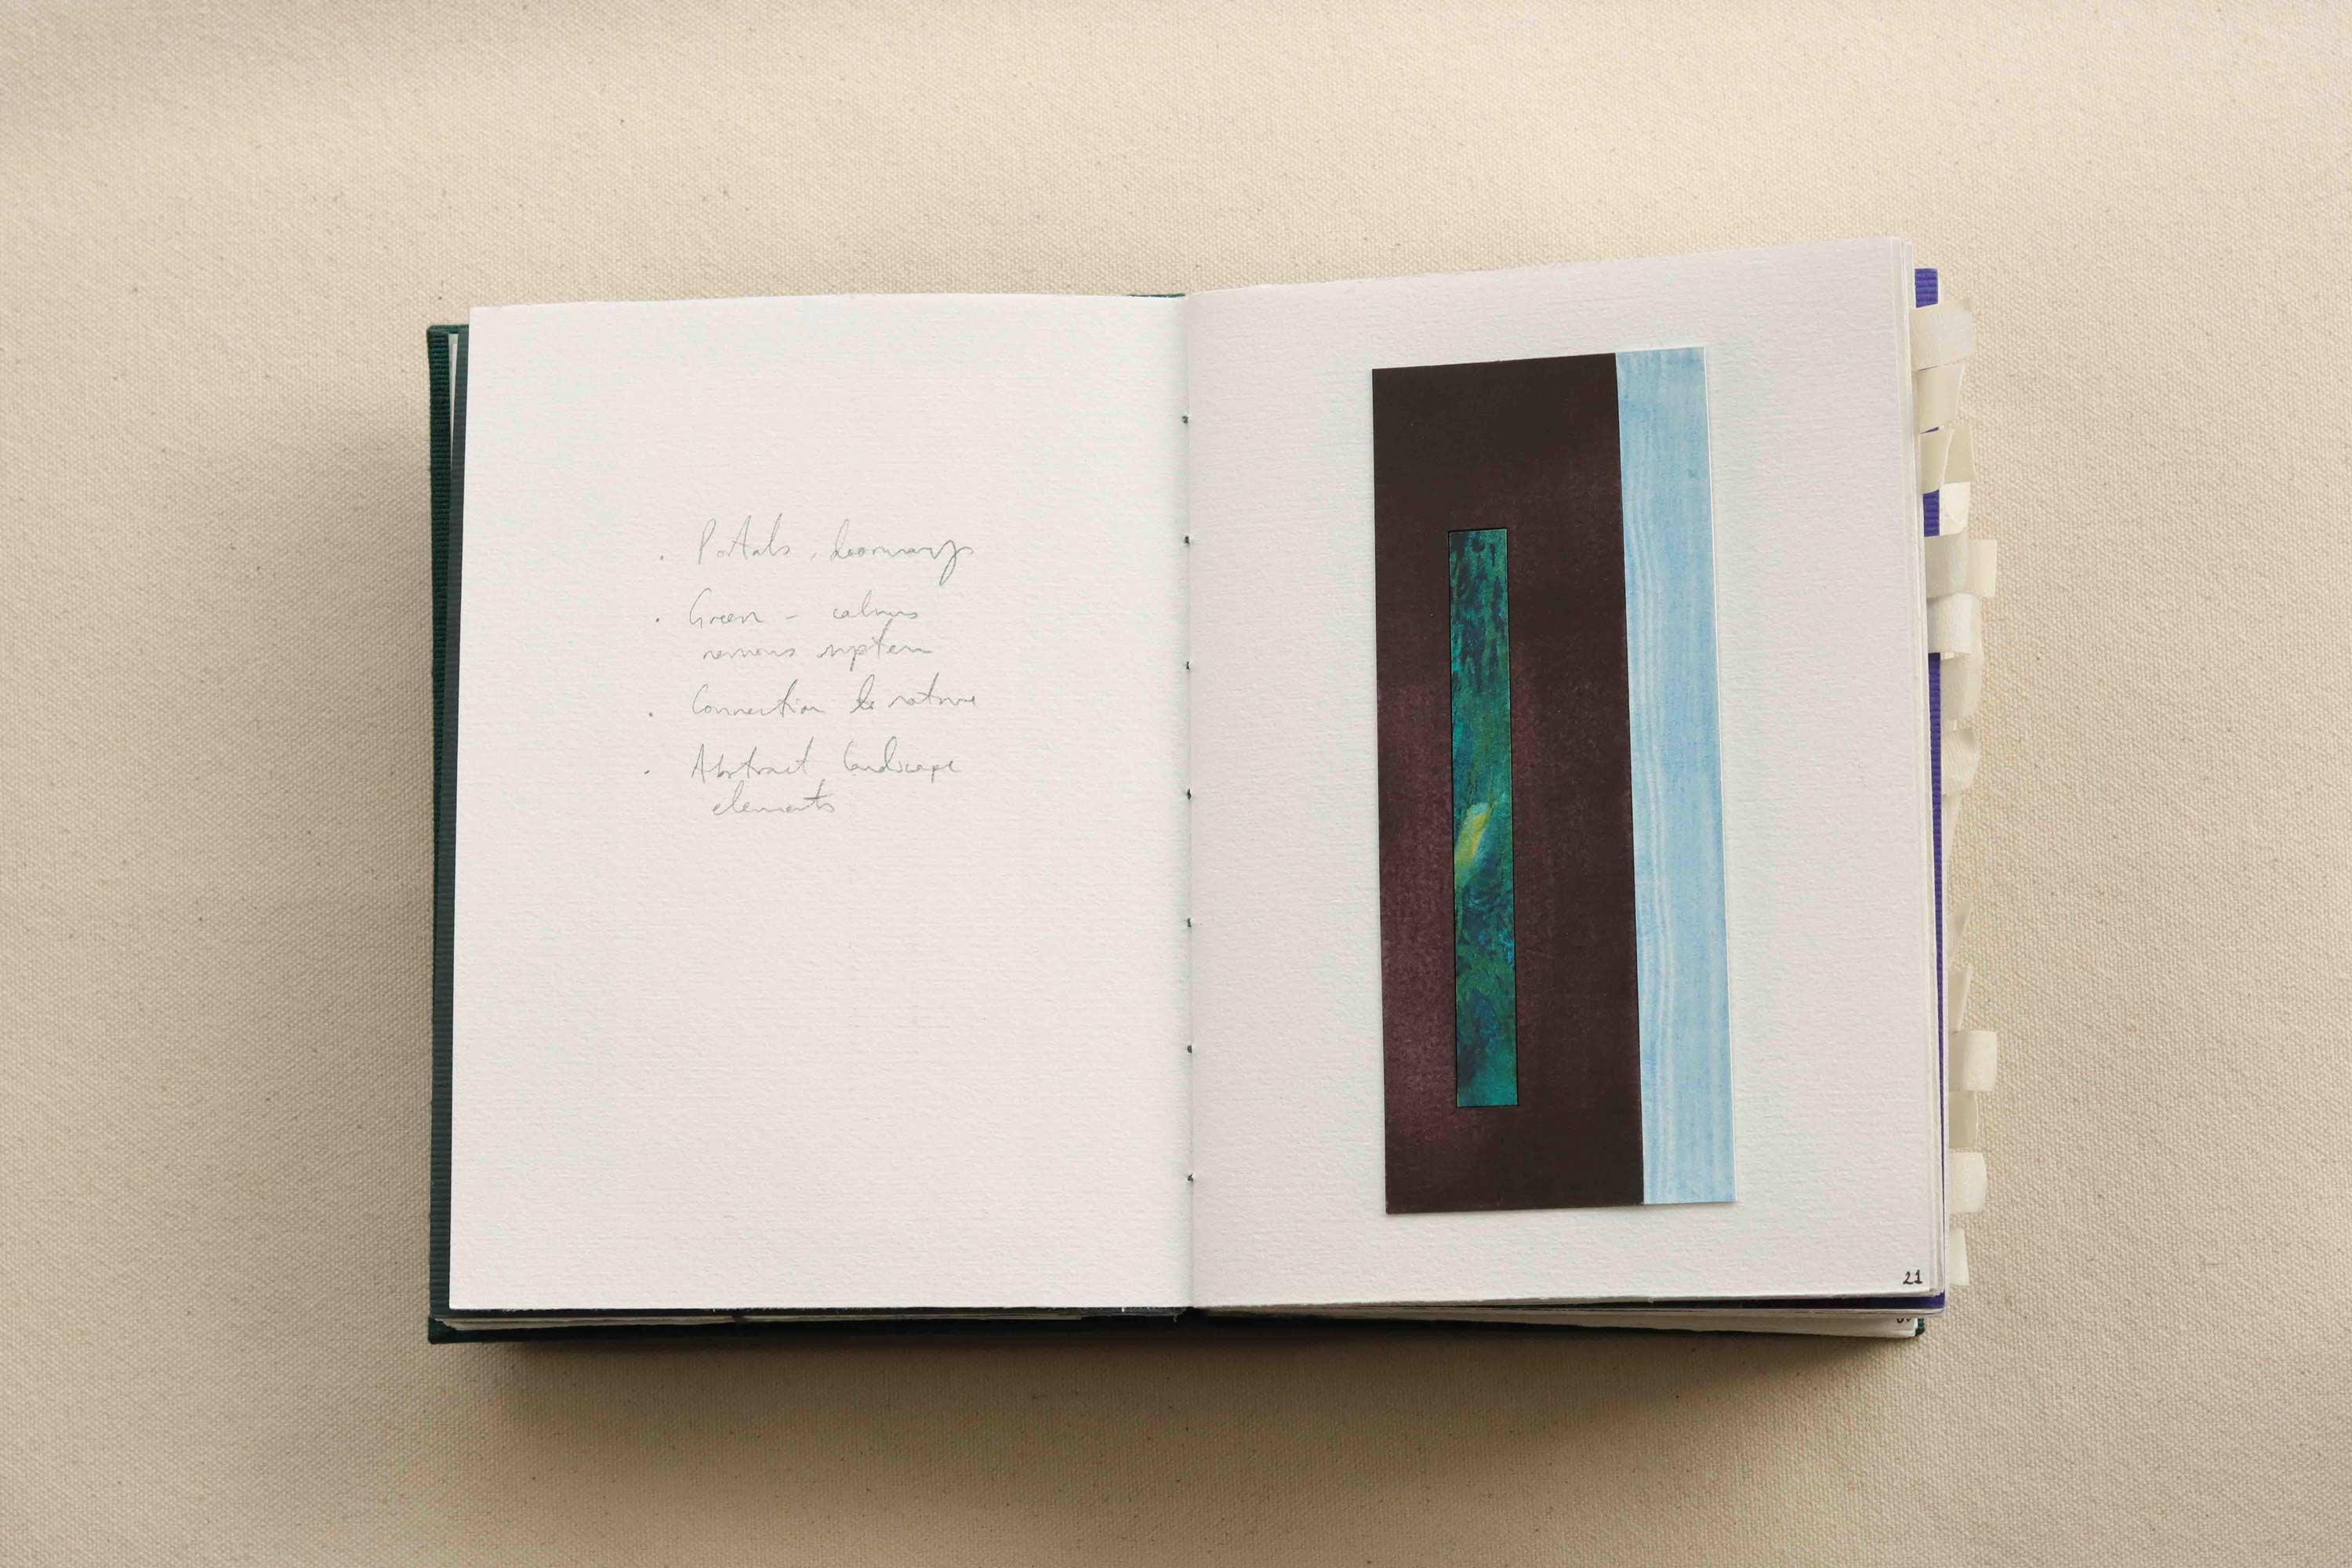 . Portals, doorways
. Green - calms
nervous system
. Connection to nature
. Abstract landscape
elements
21